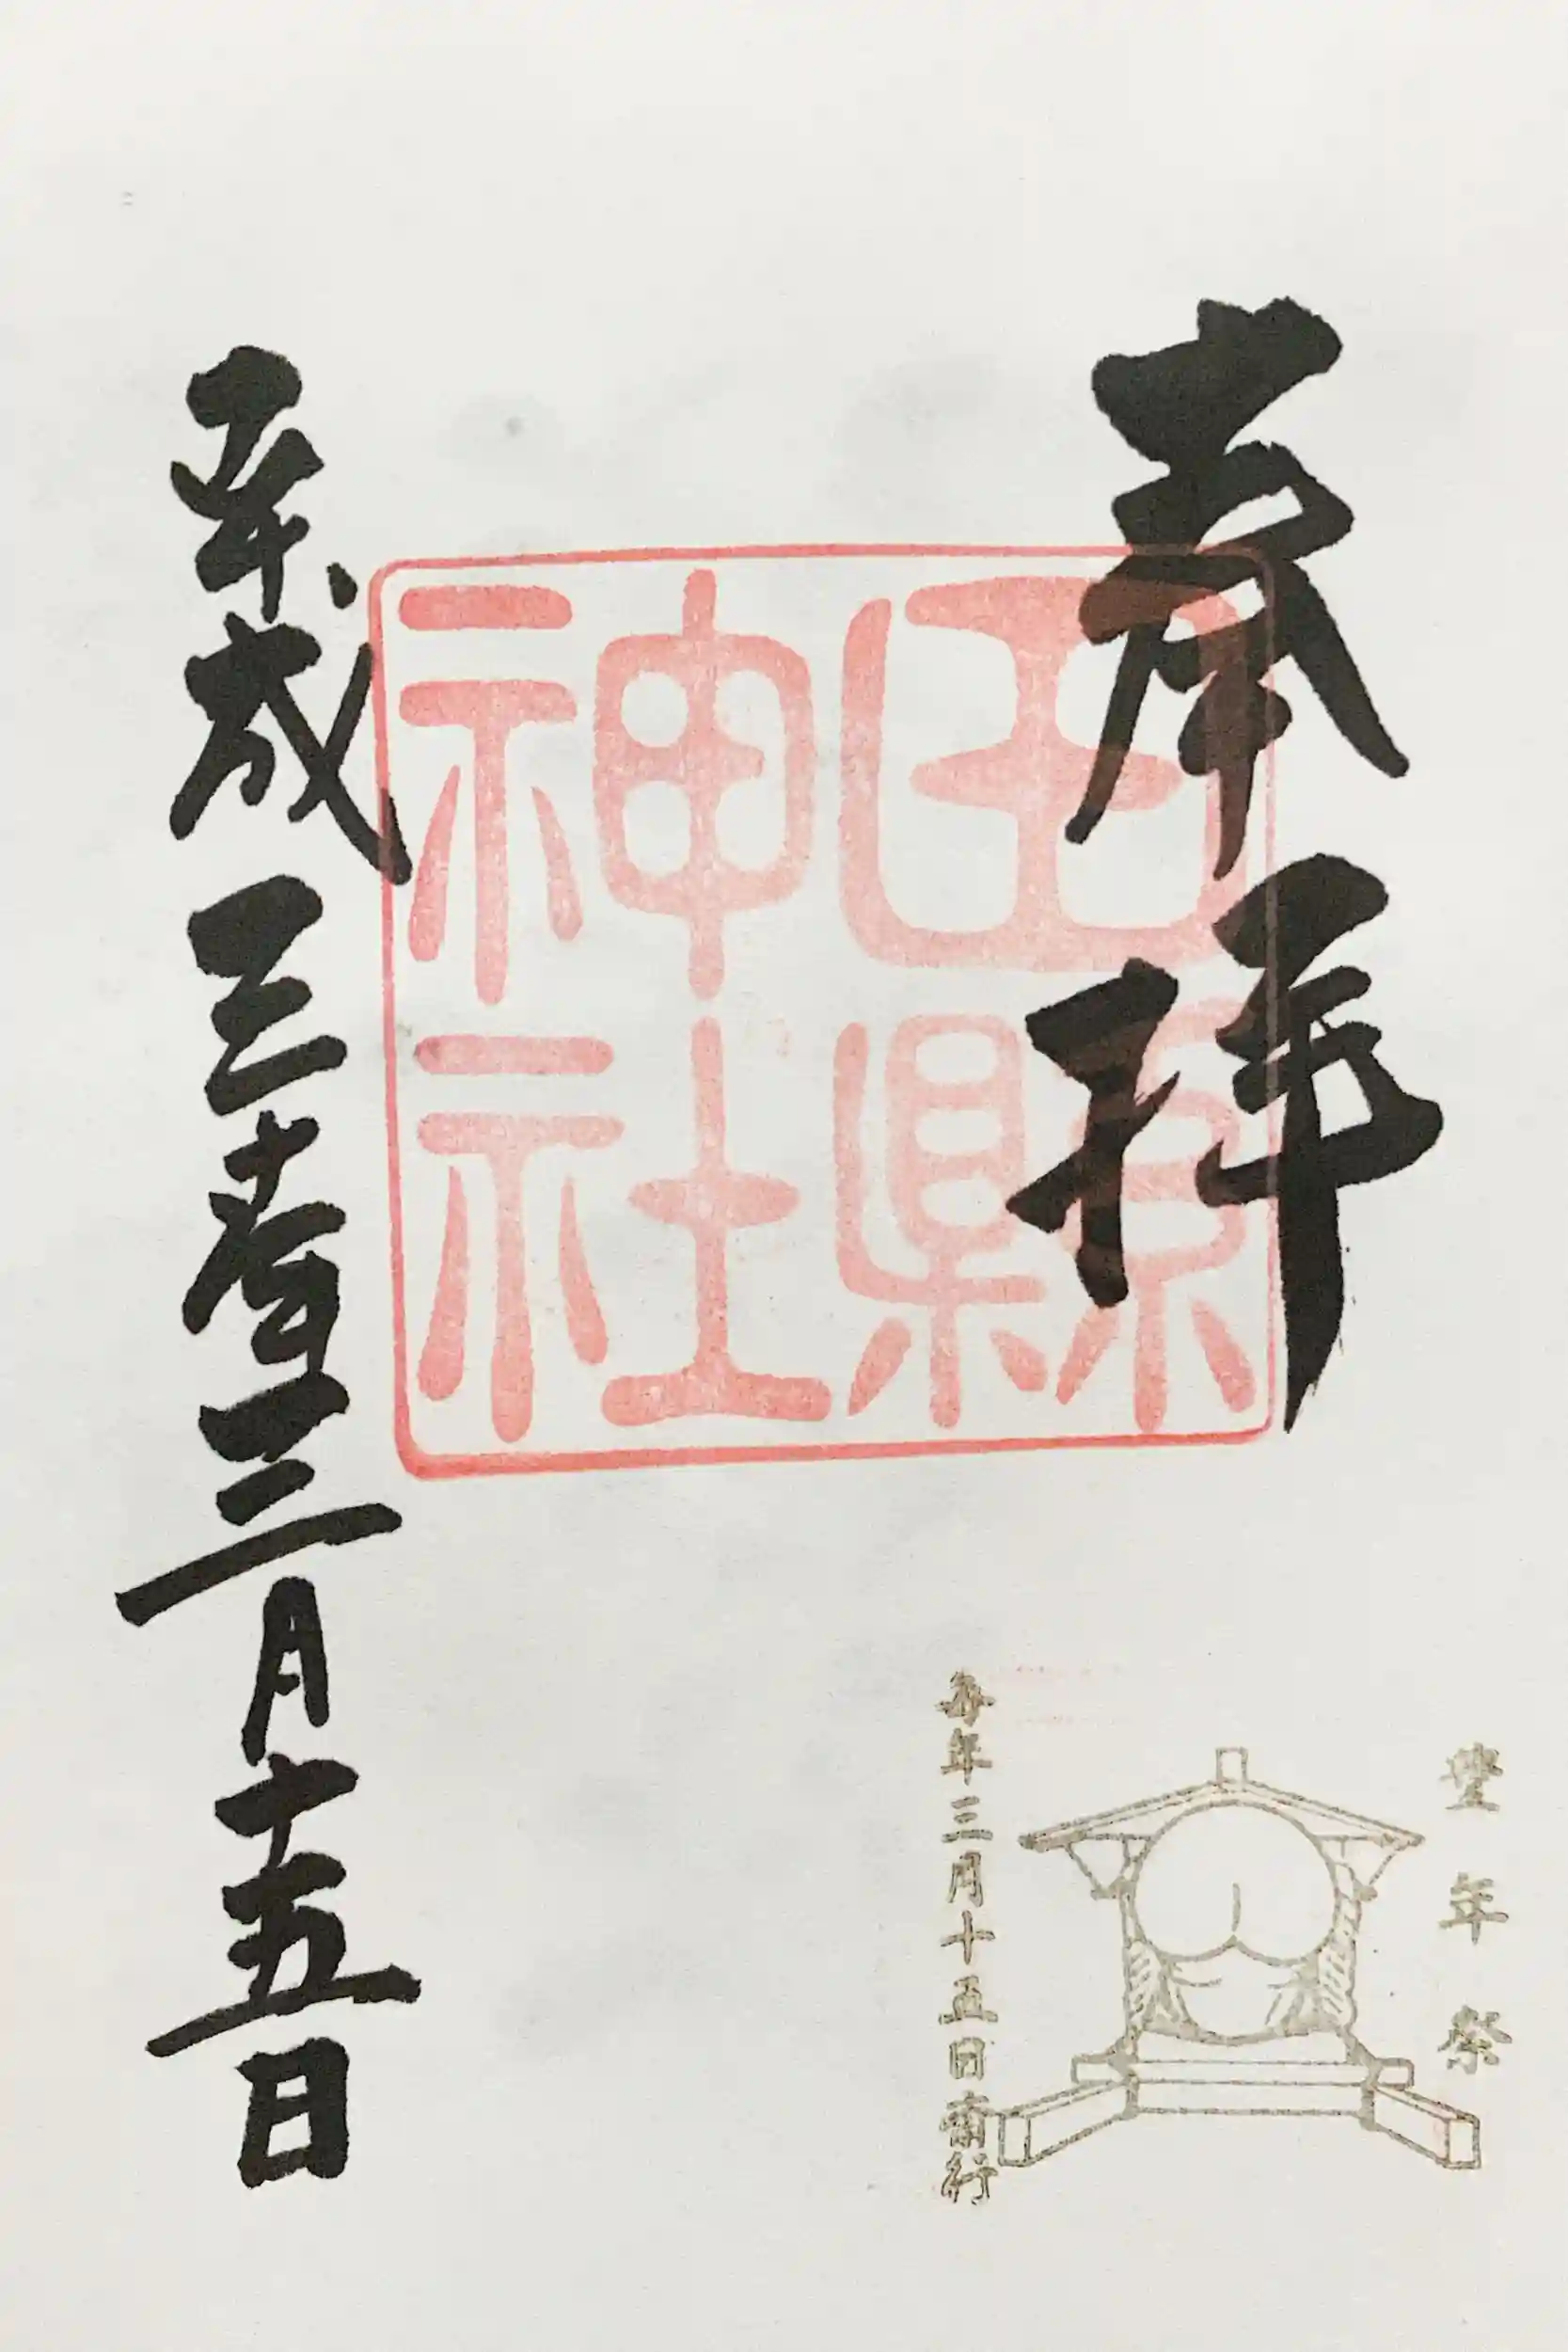 奉拝
田縣
神社
平成三十年三月十五日
豊年祭
毎年三月十五日齋行